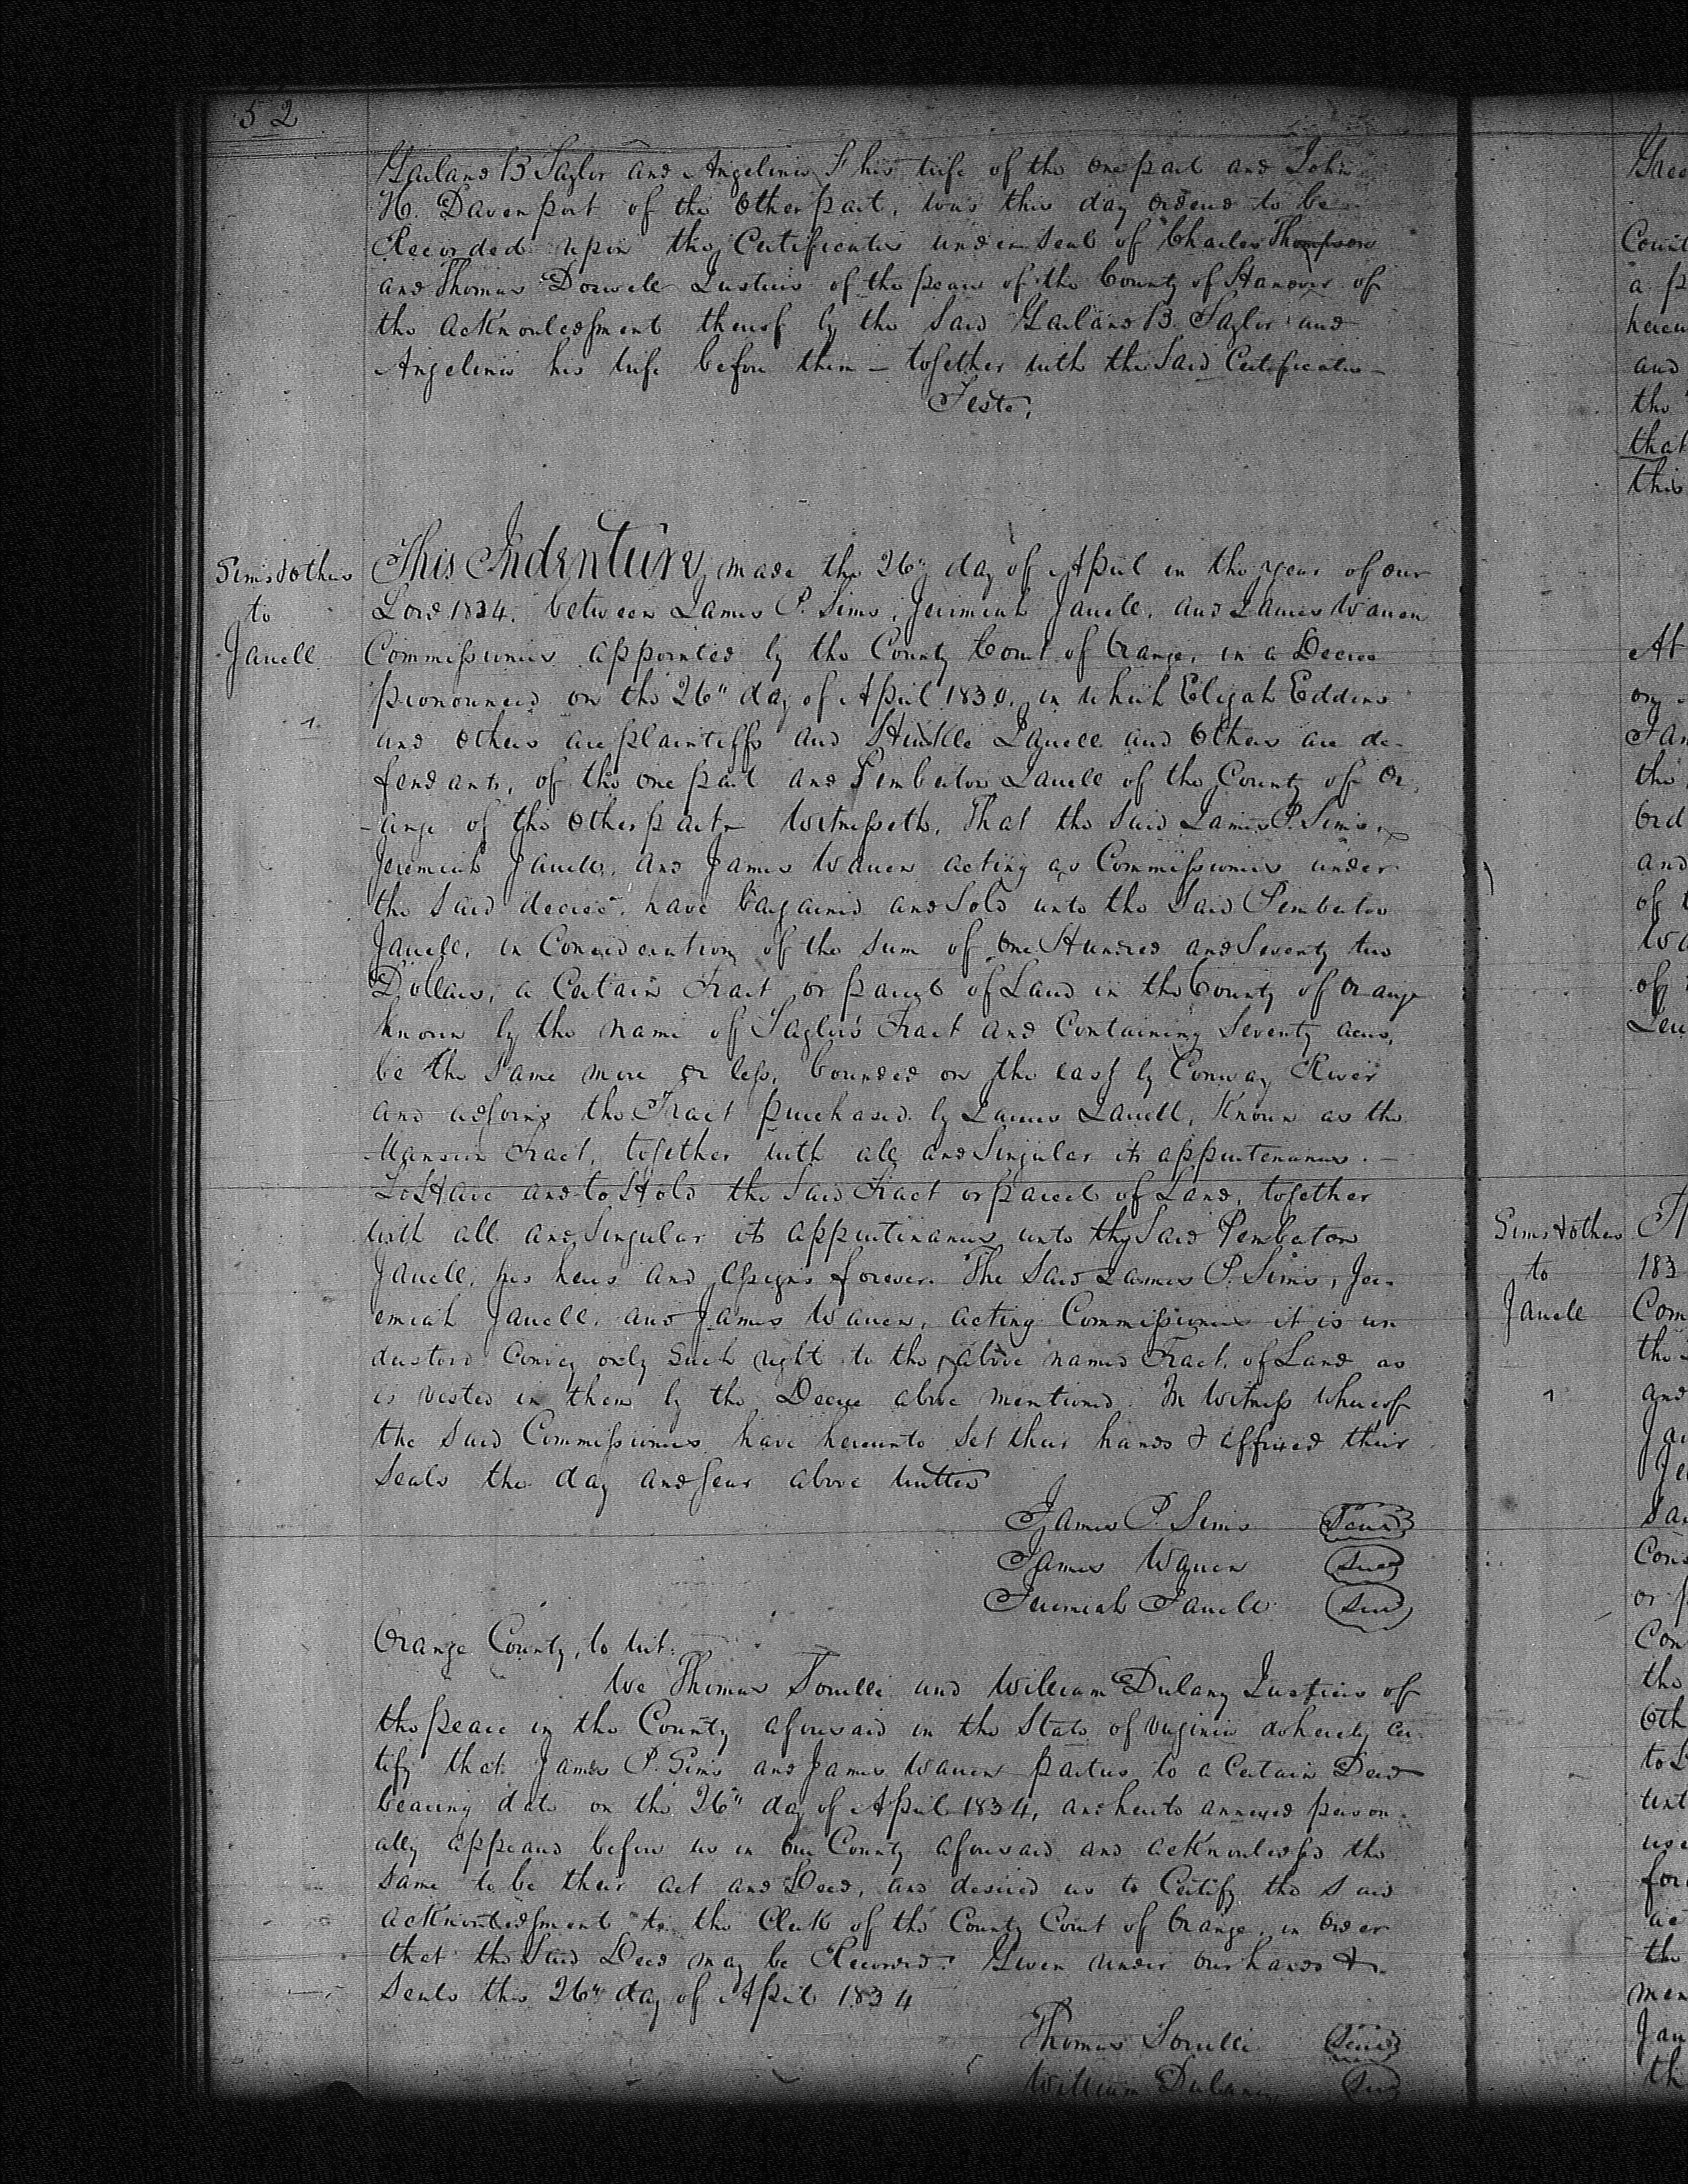 52
Garland B Taylor and Angelina F his wife of the one part and John
H. Davenport of the Other part, was this day ordered to be
Recorded upon the Certificates under Seal of Charles Thompson
and Thomas Doswell Justices of the peace of the County of Hanover of
the acknowledgment thereof by the Said Garland B. Taylor and
Angelina his wife before them – together with the Said Certificates –
Teste,
Sims & others
to
Jarrell
This Indenture, made the 26th day of April in the year of our
Lord 1834, between James P. Sims, Jerimiah Jarrell, and James Warren
Commissioners appointed by the County Court of Orange, in a Decree
pronounced on the 26" day of April 1830, in which Elijah Eddins
and others are plaintiffs and Jarrell and Others are de-
fendants, of the one part and Pemberton Jarrell of the County of Or-
-ange of the Other part – Witnesseth, That the Said James P. Sims,
Jeremiah Jarrell, and James Warren acting as Commissioners under
the Said decree, have bargained and Sold unto the Said Pemberton
Jarrell, in Consideration of the Sum of One Hundred and Seventy two
Dollars, a Certain Tract or parcel of Land in the County of Orange
known by the name of Taylor's Tract and Containing Seventy acres,
be the Same more or less, bounded on the east by Conway River
and adjoins the Tract purchased by James Jarrell, Known as the
Mansion Tract, together with all and Singular its appurtenances. –
To Have and to Hold the Said Tract or parcel of Land, together
with all and Singular its appurtinances unto the Said Pemberton
Jarrell, his heirs and assigns forever. The Said James P. Sims, Jer-
emiah Jarrell, and James Warren, acting Commissioners it is un
derstood Convey only Such right to the above named Tract of Land as
is vested in them by the Decree above mentioned. In Witness whereof
the Said Commissioners have hereunto Set their hands & affixed their
Seals the day and year above written
James P. Sims Seal
James Warren Seal
Jeremiah Jarrell Seal
Orange County, to wit:
We Thomas and William Dulany Justices of
the peace in the County aforesaid in the State of Virginia do hereby cer-
tify that James P. Sims and James Warren parties to a Certain Deed
bearing date on the 26" day of April 1834, and hereto annexed person-
ally appeared before us in our County aforesaid and acknowledged the
Same to be their act and Deed, and desired us to Certify the Said
acknowledgment to the Clerk of the County Court of Orange in order
that the Said Deed may be Recorded. Given under our hands &
Seals this 26" day of April 1834
Thomas Seal
William Dulany Seal
Sims & others
to
Jarrell